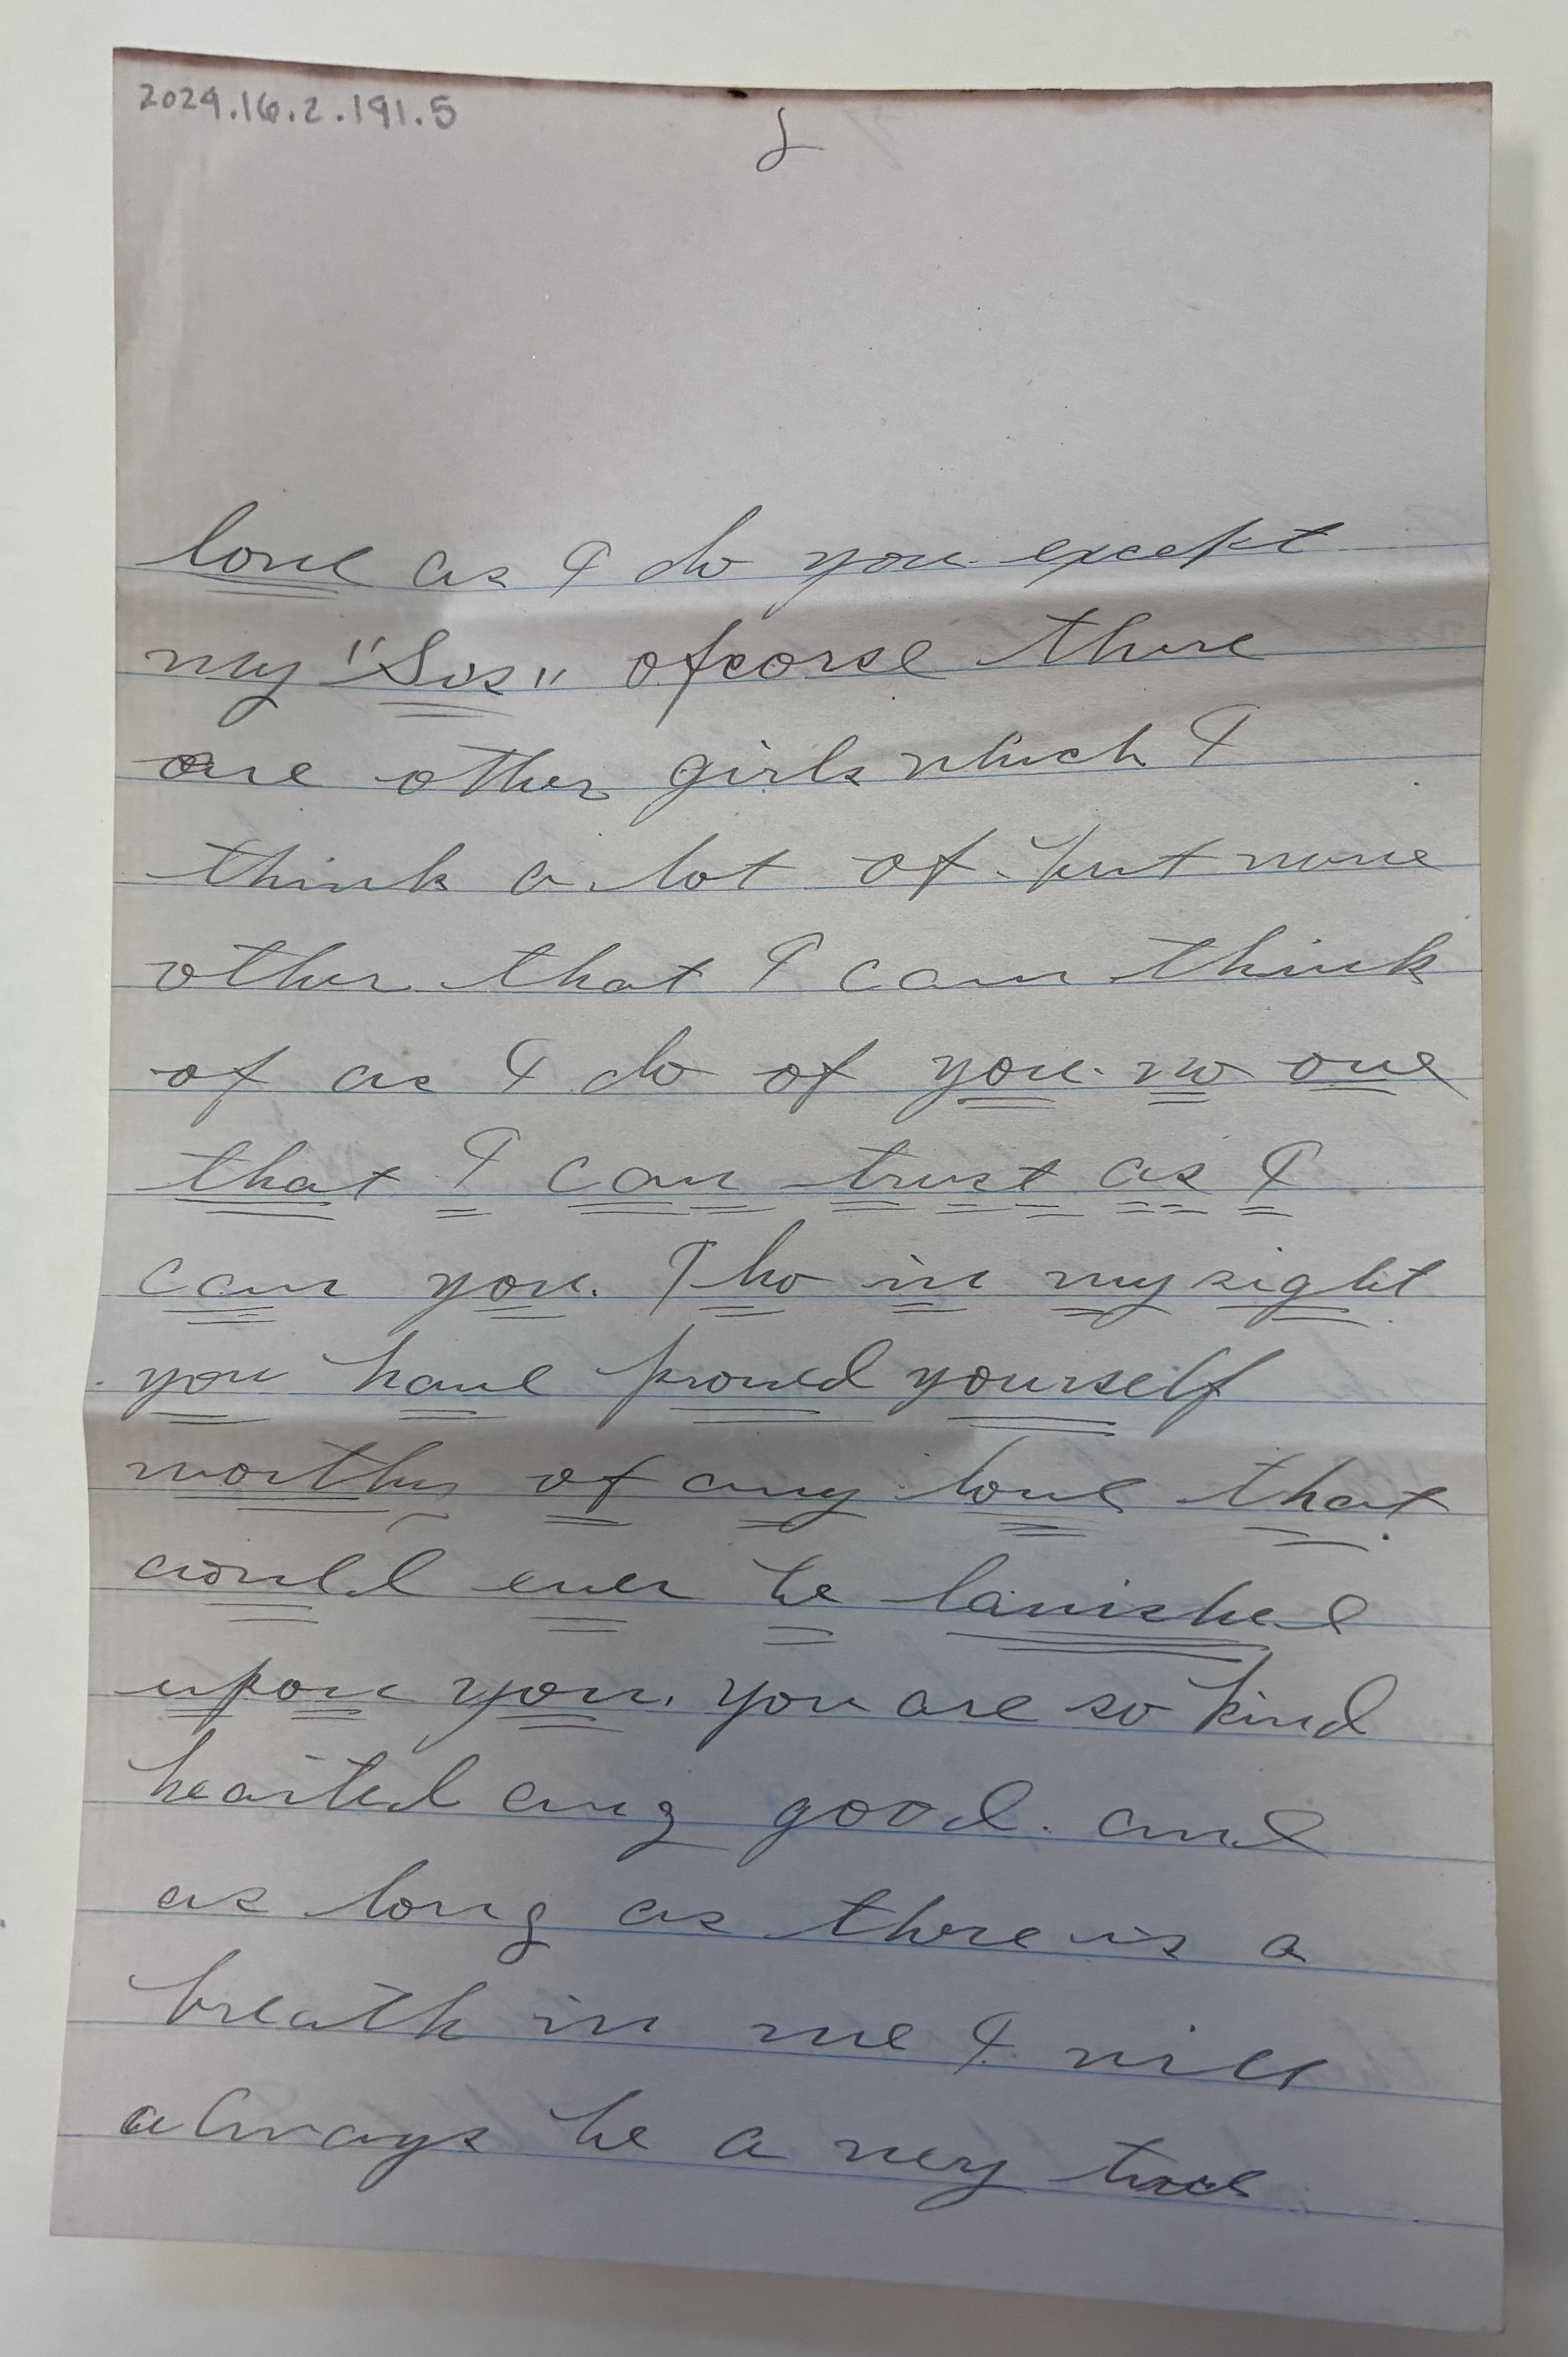 2024.16.2.191.5
love as I do you except
my "Sis" ofcorse there
are other girls which I
think a lot of. but none
other that I can think
of as I do of you. no one
that I can trust as I
can you. Tho in my sight
you have proved yourself
worthy of any love that
could ever be lavished
upon you. you are so kind
hearted and good. and
as long as there is a
breath in me I will
always be a very true